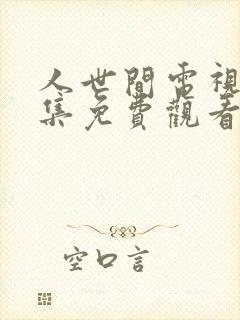 人世間電視
集免費觀看
空口言